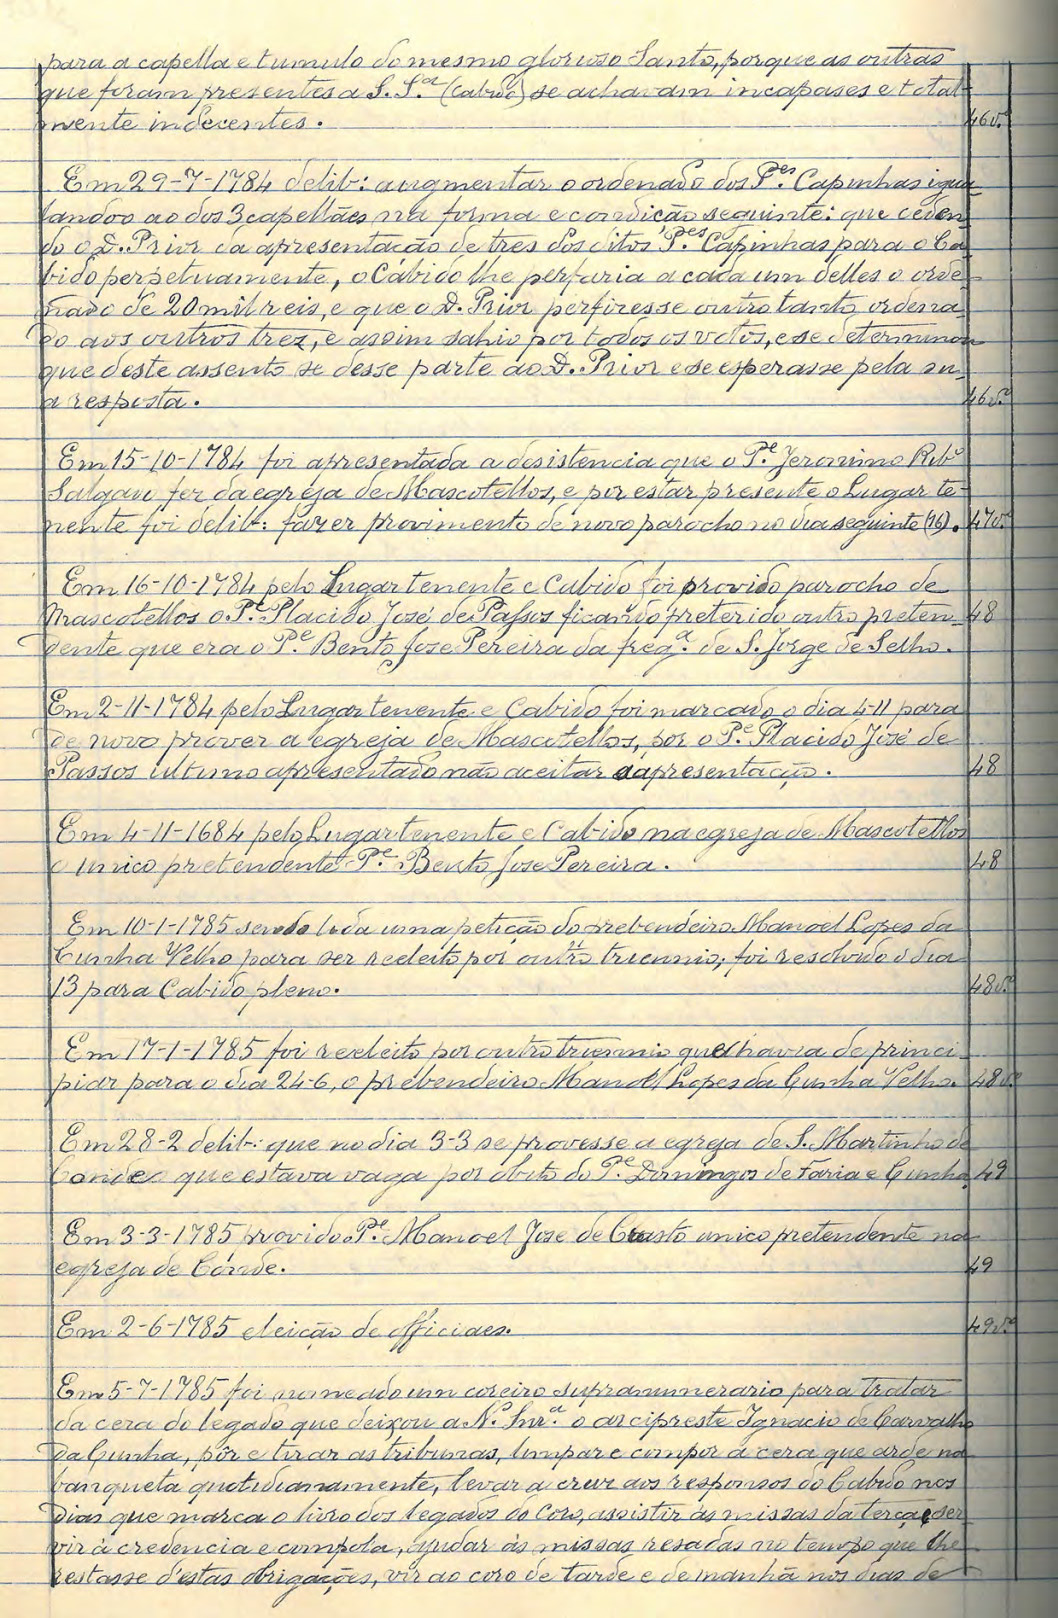 para a capella e tumulo do mesmo glorioso Santo, porque as outras
que foram presentes a S. S.ª (cabido) se achavam incapases e total-
mente indecentes. 46v.º
Em 29-7-1784 delib: augmentar o ordenado dos P.es Capinhas igua-
lando-o ao dos 3 capellães na forma e condição seguinte: que ceden-
do o D. Prior da apresentação de tres dos ditos P.es Capinhas para o Ca-
bido perpetuamente, o Cabido lhe perfaria a cada um delles o orde-
nado de 20 mil reis, e que o D. Prior perfizesse outro tanto ordena-
do aos outros trez, e assim sahio por todos os votos, e se determinou
que deste assento se desse parte ao D. Prior e se esperasse pela su-
a resposta. 46v.º
Em 15-10-1784 foi apresentada a desistencia que o P.e Jeronimo Rib.º
Salgau fez da egreja de Mascotellos, e por estar presente o Lugar te-
nente foi delib: fazer provimento de novo parocho no dia seguinte (16). 47v.º
Em 16-10-1784 pelo Lugar tenente e Cabido foi provido parocho de
Mascotellos o P.e Placido José de Passos ficando preterido outro preten- 48
dente que era o P.e Bento Jose Pereira da freg.ª de S. Jorge de Selho.
Em 2-11-1784 pelo Lugar tenente e Cabido foi marcado o dia 4-11 para
de novo prover a egreja de Mascotellos, por o P.e Placido José de
Passos ultimo apresentado não aceitar a apresentação. 48
Em 4-11-1684 pelo Lugar tenente e Cabido na egreja de Mascotellos
o unico pretendente P.e Bento Jose Pereira. 48
Em 10-1-1785 sendo lida uma petição do prebendeiro Manoel Lopes da
Cunha Velho para ser reeleito por outro triennio; foi resolvido o dia
13 para Cabido pleno. 48v.º
Em 17-1-1785 foi reeleito por outro triennio que havia de princi-
piar para o dia 24-6, o prebendeiro Manoel Lopes da Cunha Velho. 48v.º
Em 28-2 delib: que no dia 3-3 se provesse a egreja de S. Martinho de
Conde que estava vaga por obito do P.e Domingos de Faria e Cunha 49
Em 3-3-1785 provido P.e Manoel Jose de Couto unico pretendente na
egreja de Conde. 49
Em 2-6-1785 eleição de officiaes. 49v.º
Em 5-7-1785 foi nomeado um coreiro supranumerario para tratar
da cera do legado que deixou a N.ª Snr.ª o arcipreste Ignacio de Carvalho
da Cunha, pôr e tirar as tribunas, limpar e compor a cera que arde na
banqueta quotidianamente, levar a cruz aos responsos do Cabido nos
dias que marca o livro dos legados do Coro, assistir ás missas da terça e ser
vir á credencia e campola, ajudar ás missas resadas no tempo que lhe
restasse d'estas obrigações, vir ao coro de tarde e de manhã nos dias de